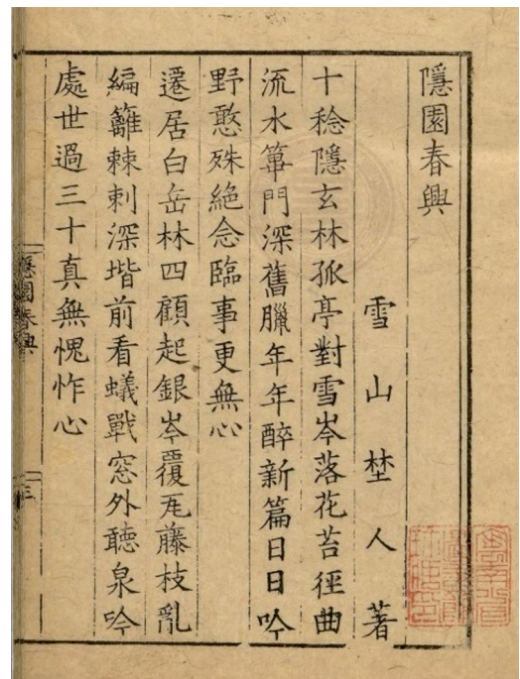 隱園春興
雪山埜人著
十稔隱玄林孤亭對雪岑落花苔徑曲
流水篳門深舊臘年年醉新篇日日吟
野憨殊絕念臨事更無心
遷居白岳林四顧起銀岑覆瓦藤枝亂
編籬棘刺深堦前看蟻戰窓外聽泉吟
處世過三十真無愧怍心
隱園春興
三